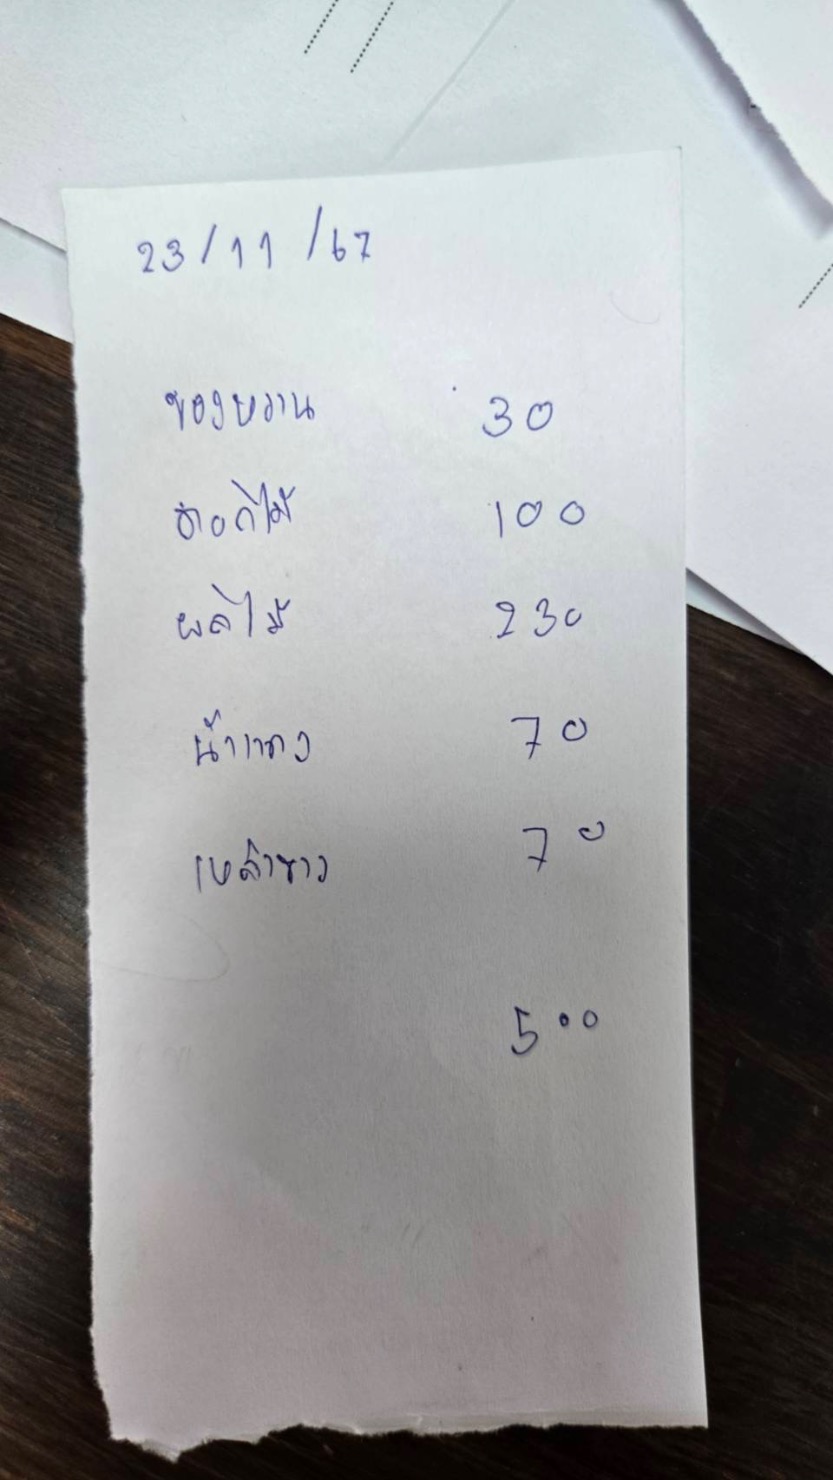 23/11/67
ของหวาน 30
ดอกไม้ 100
ผลไม้ 230
น้ำแดง 70
เหล้าขาว 70
500